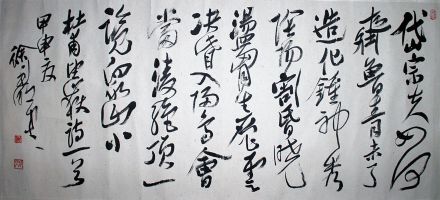 岱宗夫如何
齊魯青未了
造化鍾神秀
陰陽割昏曉
盪胸生層雲
決眥入歸鳥會
當凌絕頂一
覽衆山小
杜甫望嶽詩一首
甲申夏
徐